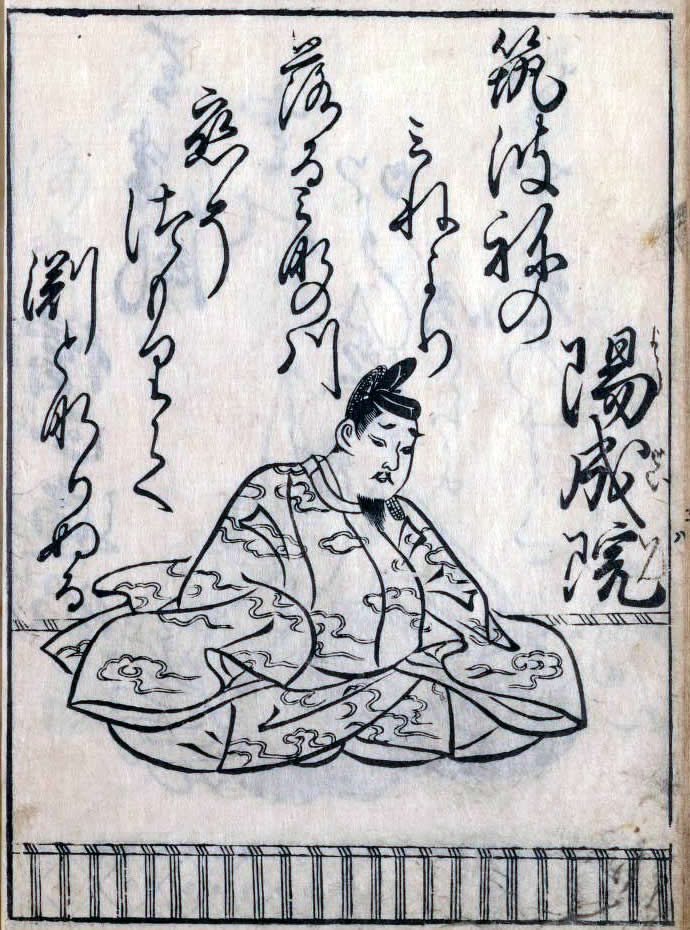 陽成院
筑波祢の
みねより
落るみなの川
恋そ
つもりて
渕となりぬる